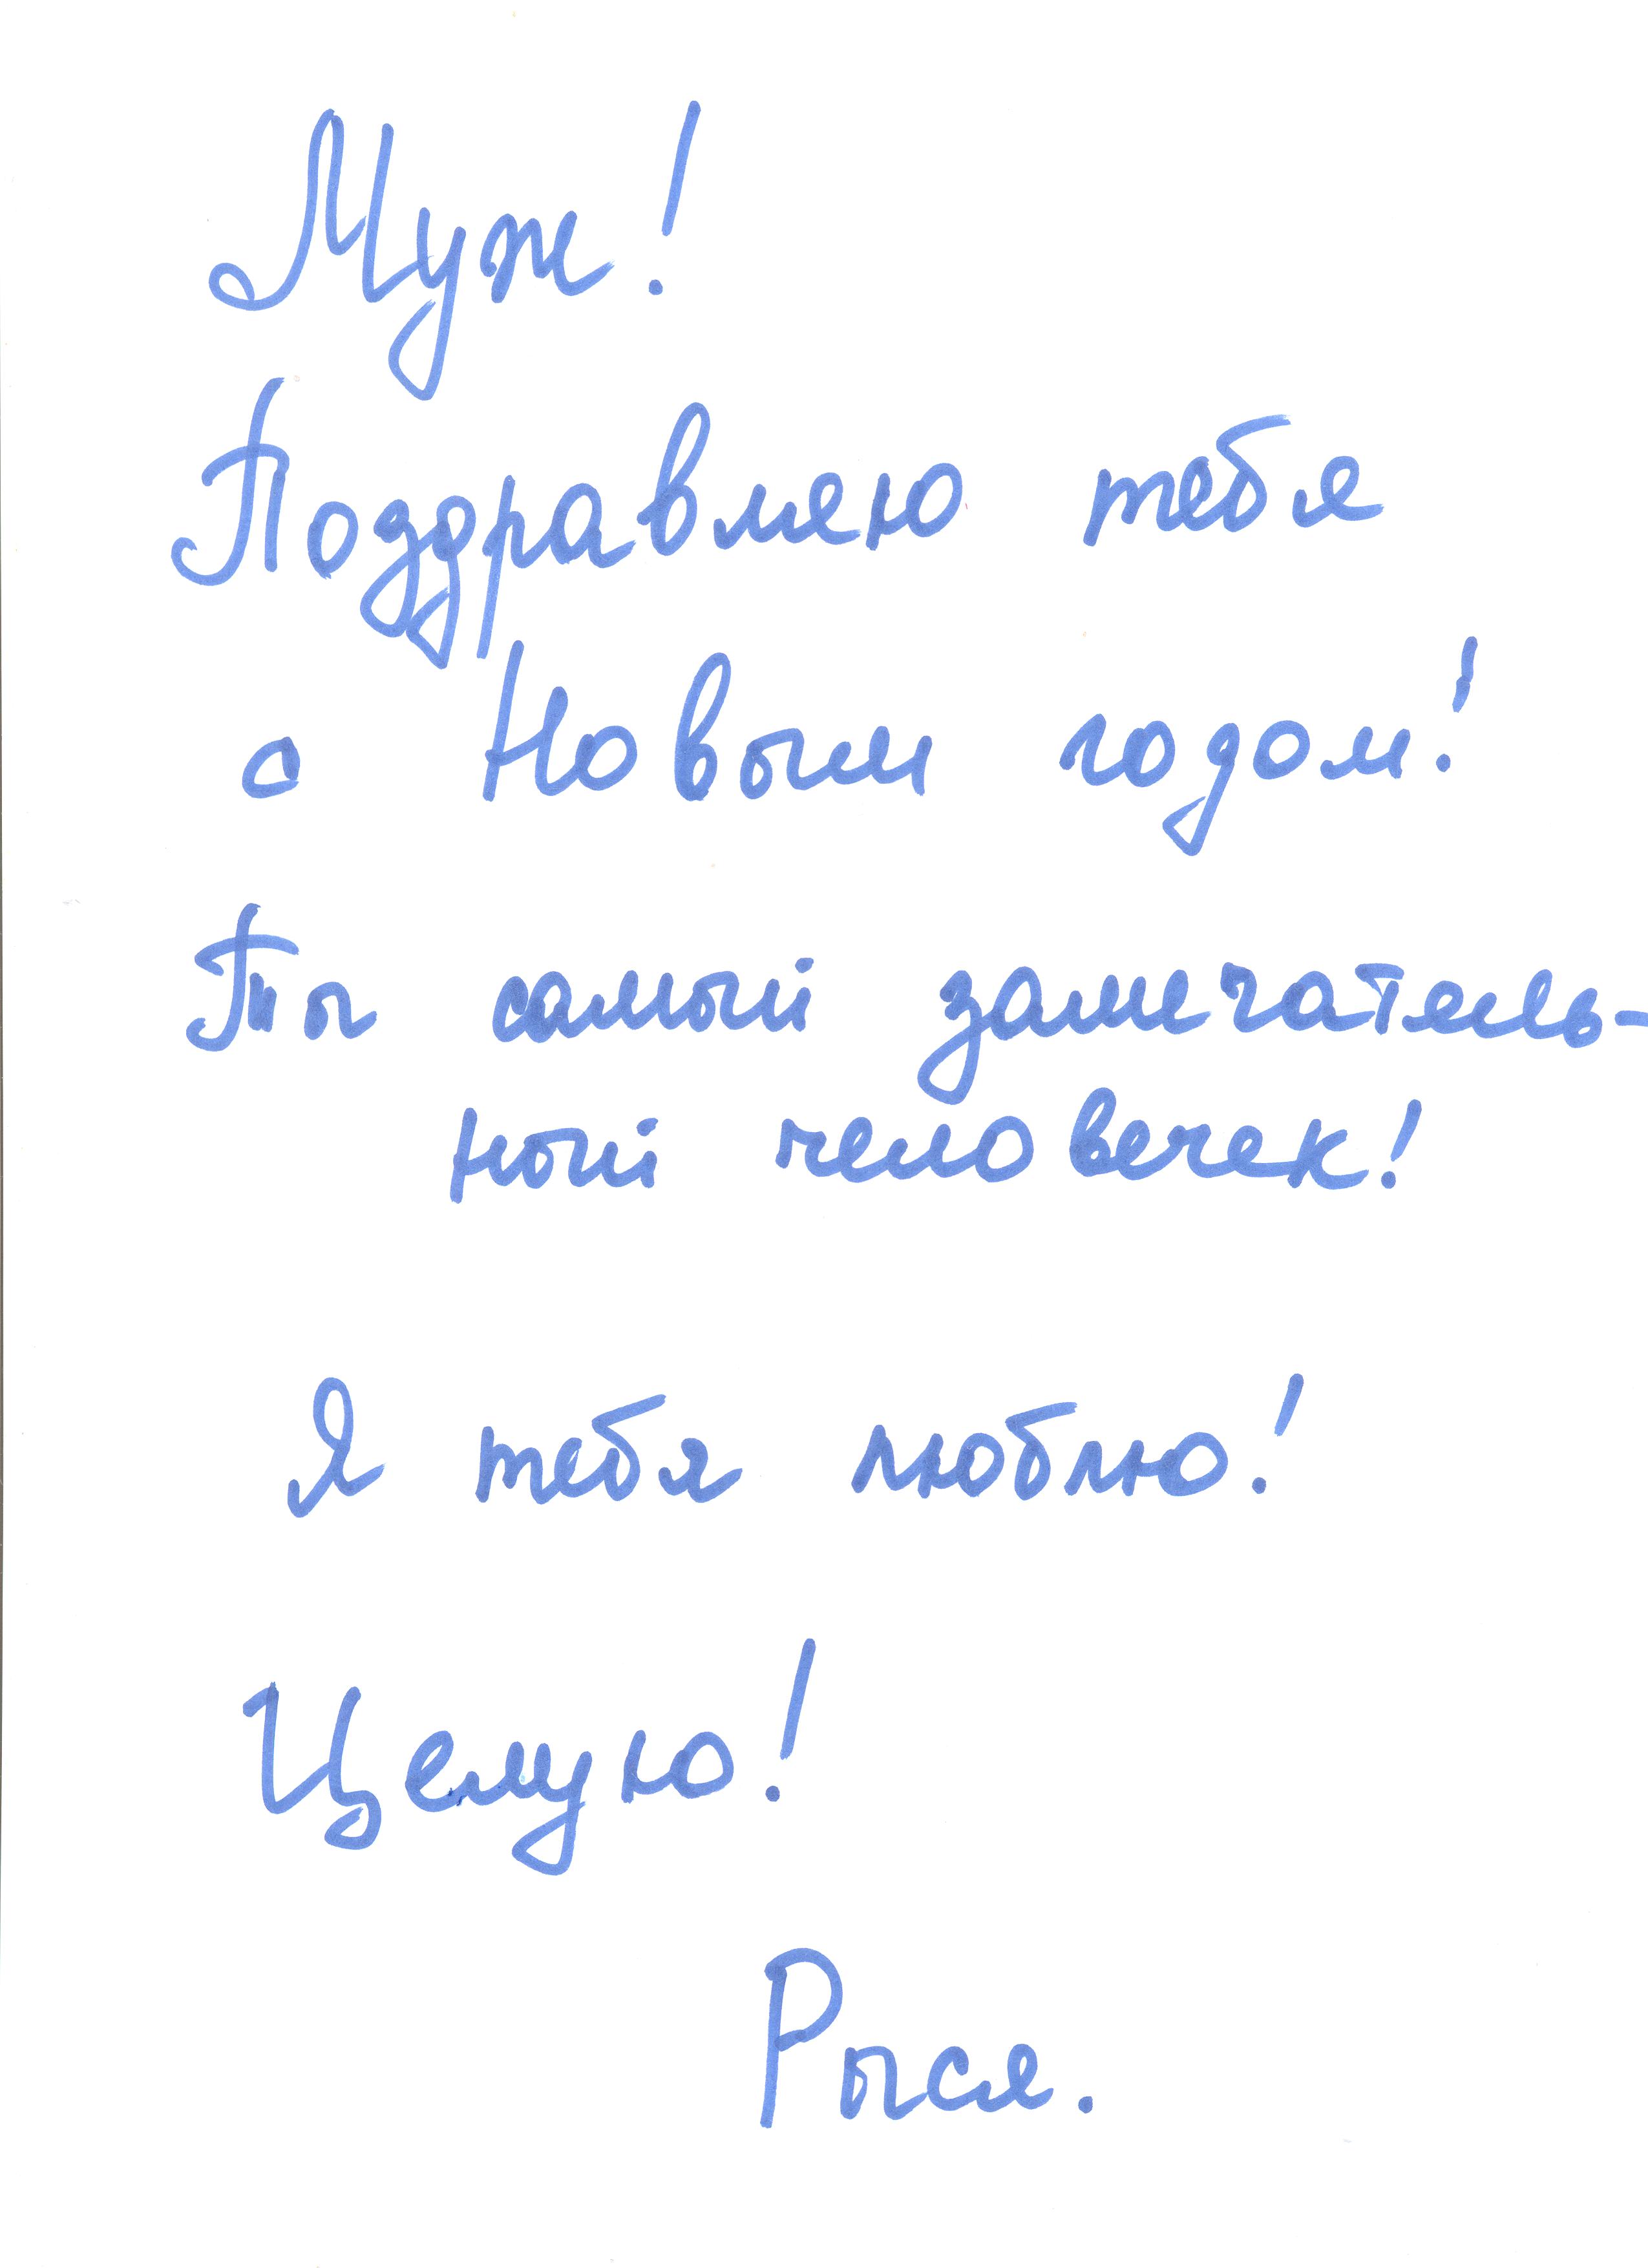 Муж!
Поздравляю тебя
с Новым годом!
Ты самый замечатель-
ный человечек!
Я тебя люблю!
Целую!
Рыся.